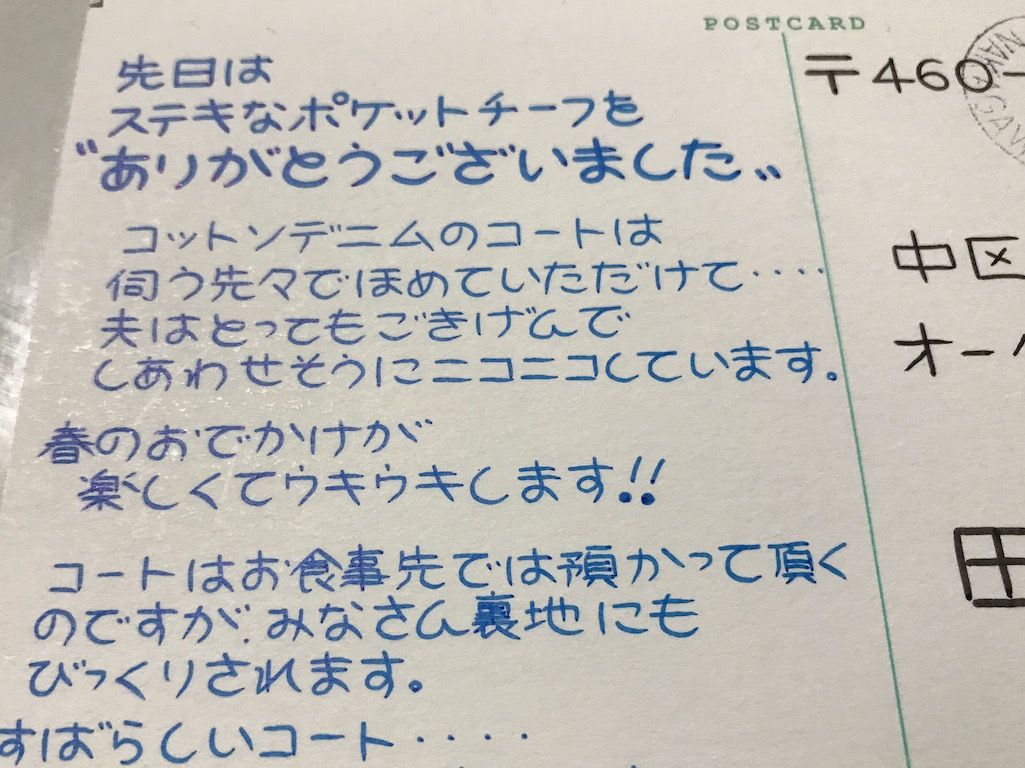 POSTCARD
先日は
ステキなポケットチーフを
〝ありがとうございました〟
コットンデニムのコートは
伺う先々でほめていただけて‥‥
夫はとってもごきげんで
しあわせそうにニコニコしています。
春のおでかけが
楽しくてウキウキします!!
コートはお食事先では預かって頂く
のですが、みなさん裏地にも
びっくりされます。
すばらしいコート‥‥
〒460-
中区
オー